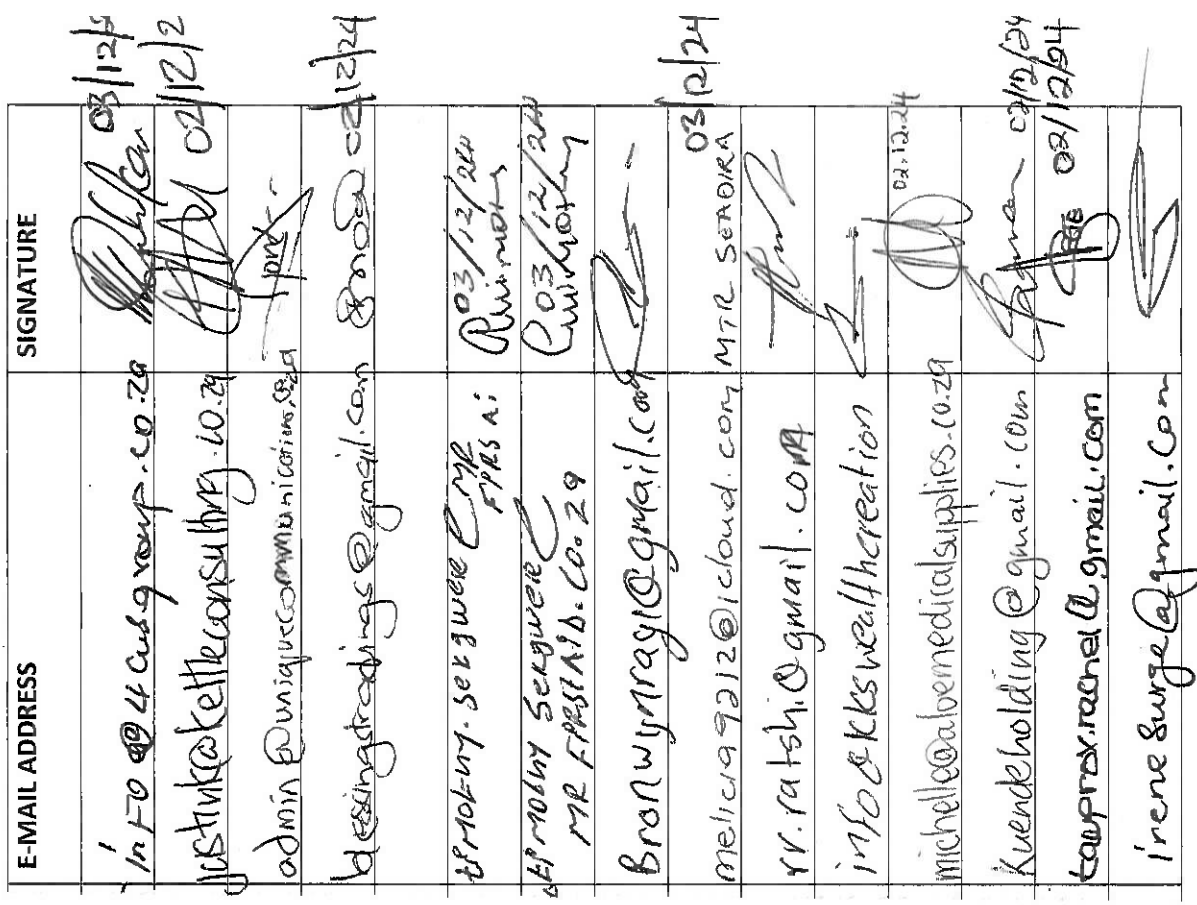 E-MAIL ADDRESS SIGNATURE
info@4cubsgroup.co.za 03/12/
justink@kettleconsulting.co.za 02/12/2
admin@uniquecommunications.co.za
blessingstradings@gmail.com 02/12/24
03/12/24
MR
03/12/24
MR FPRSTAID.CO.29
Bronwynray1@gmail.com
melicia99212@icloud.com MTR SEADIRA 03/12/24
rr.ratshi@gmail.com
info@kkswealthcreation
michelle@aloemedicalsupplies.co.za 02.12.24
Kuendeholding@gmail.com 02/12/24
tauprox.rachel@gmail.com 02/12/24
irenesurge@gmail.com